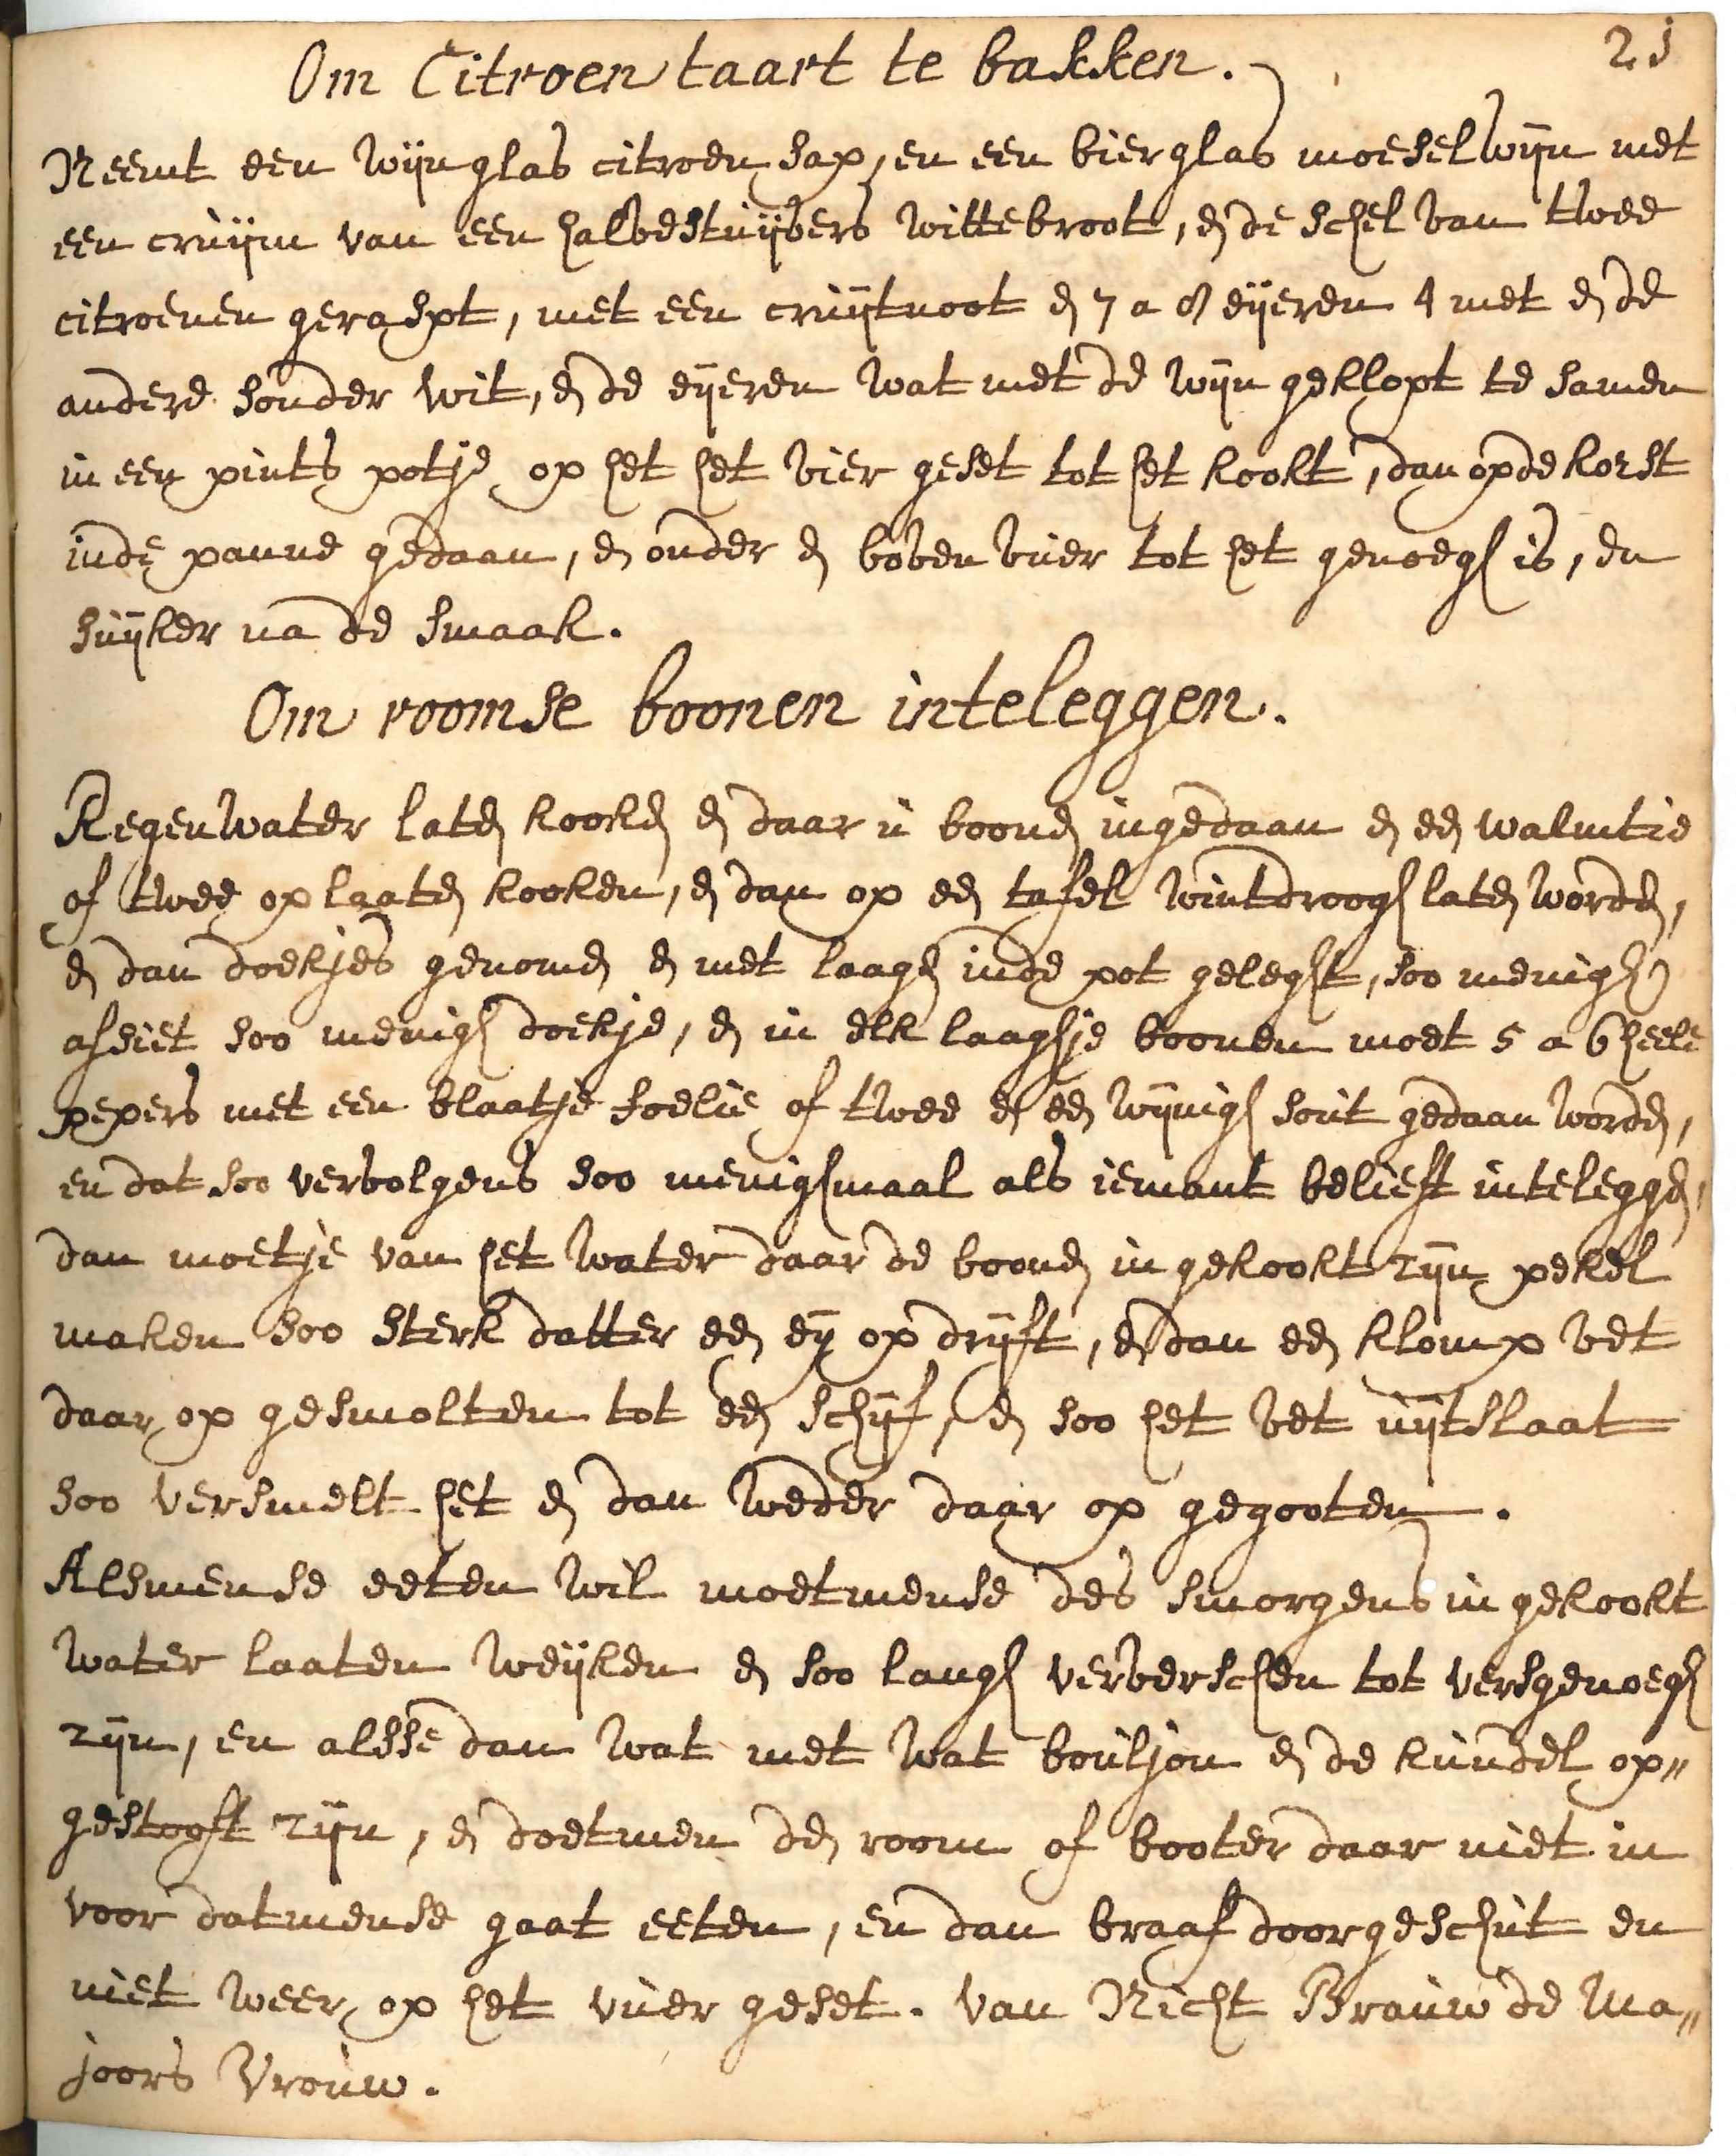 Om Citroen taart te bakken.
21
Neemt een wijnglas citroen sap, en een bierglas moeselwijn met
een cruijm van een halvestuijvers wittebroot, en de schel van twee
citroenen geraspt, met een cruijtnoot en 7 a 8 eijeren 4 met en de
andere sonder wit, en de eijeren wat met de wijn geklopt te samen
in een pints potje op het het vier geset tot het kookt, dan op de korst
inde panne gedaan, en onder en boven vuer tot het genoegh is, en
suijker na de smaak.
Om roomse boonen inteleggen.
Regenwater laten kooken en daar u boonen ingedaan en een walmtie
of twee op laaten kooken, en dan op een tafel wintdroogh laten worden,
en dan doekjes genomen en met laagen inde pot geleght, soo menigh
afsiet soo menigh doekje, en in elk laaghje boonen moet 5 a 6 heele
pepers met een blaatje foelie of twee en een wijnigh sout gedaan worden,
en dat soo vervolgens soo menighmaal als iemant belieft inteleggen,
dan moetje van het water daar de boonen in gekookt zijn pekel
maken soo sterk datter een eij op drijft, en dan een klomp vet
daar op gesmolten tot een schijf, en soo het vet uijtslaat
soo versmelt het en dan weder daar op gegooten.
Alsmense eeten wil moetmense des smorgens in gekookt
water laaten weijken en soo langh ververschen tot versgenoegh
zijn, en alsse dan wat met wat bouljon en de kundel op„
gestooft zijn, en doetmen den room of booter daar niet in
voor datmense gaat eeten, en dan braaf doorgeschut en
niet weer op het vuer geset. van Nicht Brauw de Ma„
joors Vrouw.